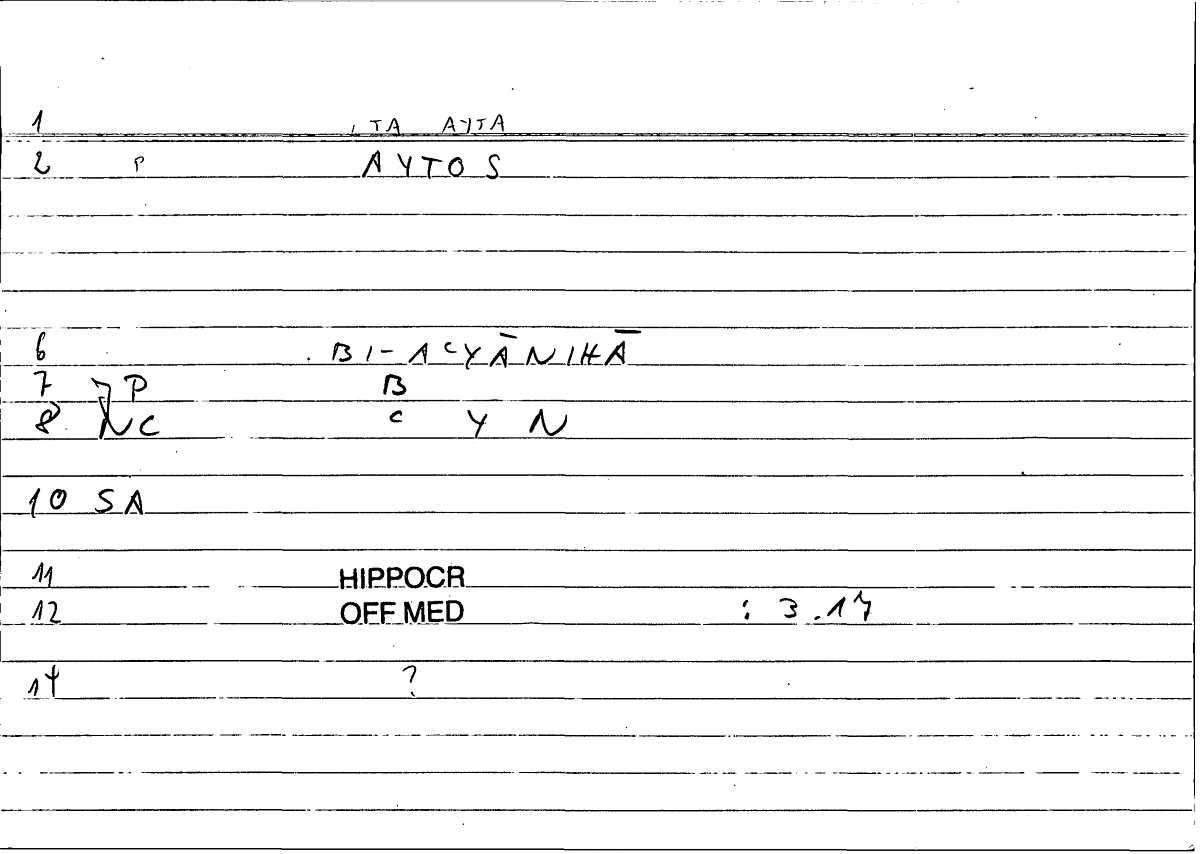 1 , TA AYTA
2 P AYTOS
6 . BI-AᶜYĀNIHĀ
7 P B
8 NC c Y N
10 SA
11 HIPPOCR
12 OFF MED : 3.17
14 ?